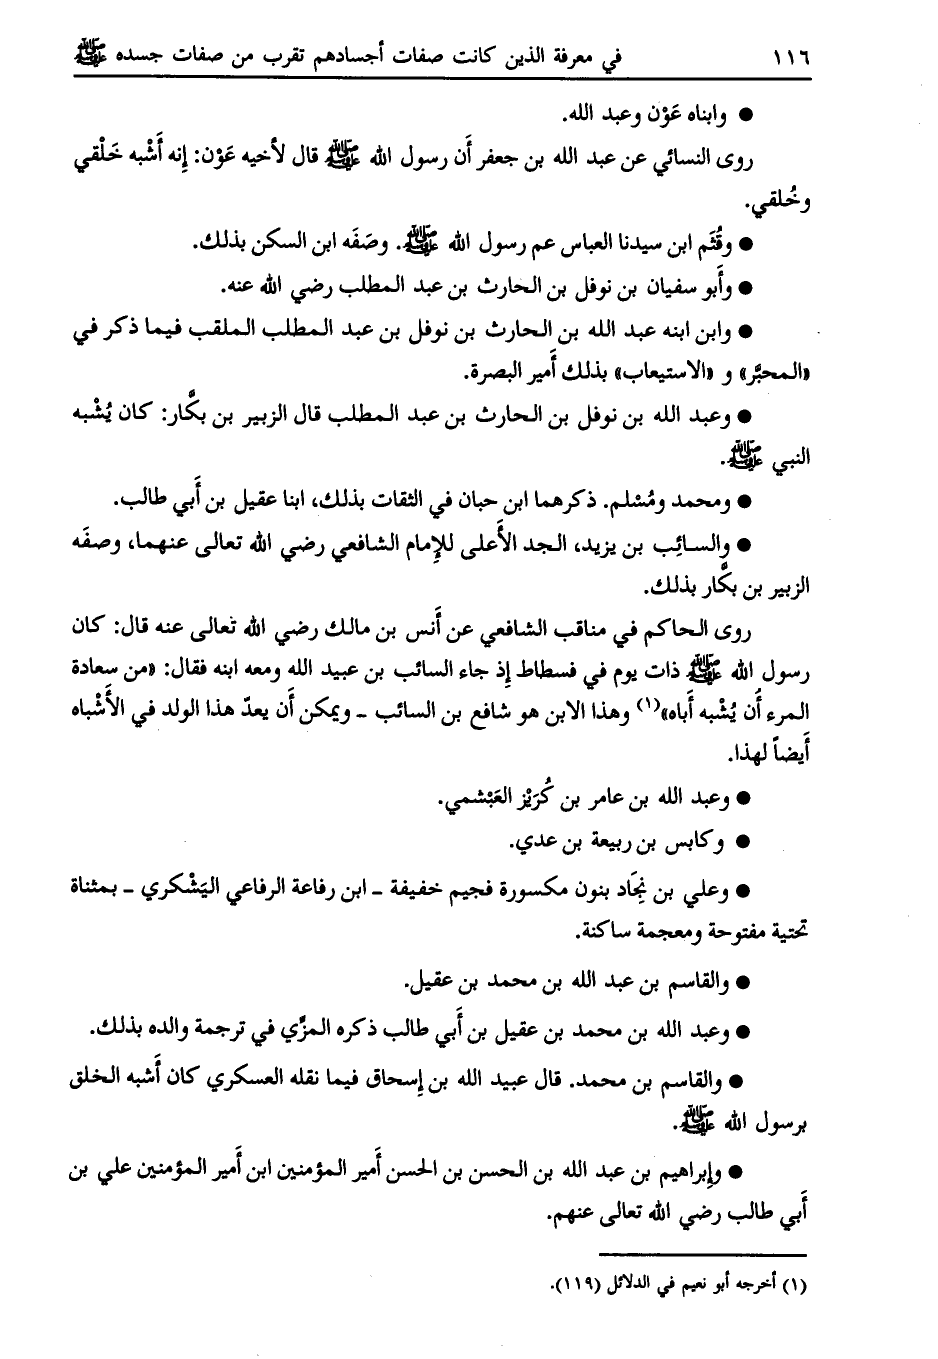 ١١٦ في معرفة الذين كانت صفات أجسادهم تقرب من صفات جسده ﷺ
● وابناه عَوْن وعبد الله.
روى النسائي عن عبد الله بن جعفر أَن رسول الله ﷺ قال لأخيه عَوْن: إِنه أَشْبه خَلْقي
وخُلقي.
● وقُثَم ابن سيدنا العباس عم رسول الله ﷺ. وصَفَه ابن السكن بذلك.
● وأَبو سفيان بن نوفل بن الحارث بن عبد المطلب رضي الله عنه.
● وابن ابنه عبد الله بن الحارث بن نوفل بن عبد المطلب الملقب فيما ذكر في
«المحبَّر» و «الاستيعاب» بذلك أَمير البصرة.
● وعبد الله بن نوفل بن الحارث بن عبد المطلب قال الزبير بن بكَّار: كان يُشْبه
النبي ﷺ.
● ومحمد ومُسْلم. ذكرهما ابن حبان في الثقات بذلك، ابنا عقيل بن أَبي طالب.
● والسائِب بن يزيد، الجد الأَعلى للإِمام الشافعي رضي الله تعالى عنهما، وصفَه
الزبير بن بكَّار بذلك.
روى الحاكم في مناقب الشافعي عن أَنس بن مالك رضي الله تعالى عنه قال: كان
رسول الله ﷺ ذات يوم في فسطاط إِذ جاء السائب بن عبيد الله ومعه ابنه فقال: «من سعادة
المرء أَن يُشْبه أَباه»(١) وهذا الابن هو شافع بن السائب ـ ويمكن أَن يعدّ هذا الولد في الأَشْباه
أَيضاً لهذا.
● وعبد الله بن عامر بن كُرَيْز العَبْشمي.
● وكابس بن ربيعة بن عدي.
● وعلي بن نِجَاد بنون مكسورة فجيم خفيفة ـ ابن رفاعة الرفاعي اليَشْكري ـ بمثناة
تحتية مفتوحة ومعجمة ساكنة.
● والقاسم بن عبد الله بن محمد بن عقيل.
● وعبد الله بن محمد بن عقيل بن أَبي طالب ذكره المزَّي في ترجمة والده بذلك.
● والقاسم بن محمد. قال عبيد الله بن إِسحاق فيما نقله العسكري كان أَشبه الخلق
برسول الله ﷺ.
● وإِبراهيم بن عبد الله بن الحسن بن الحسن أَمير المؤمنين ابن أَمير المؤمنين علي بن
أَبي طالب رضي الله تعالى عنهم.
(١) أخرجه أبو نعيم في الدلائل (١١٩).